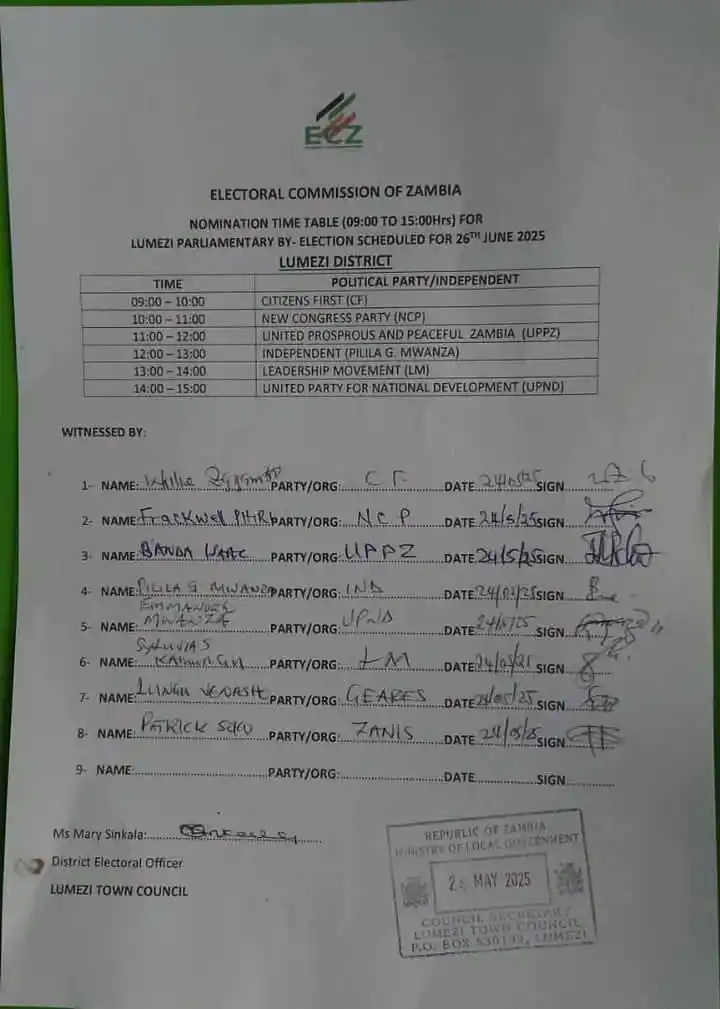 ECZ
ELECTORAL COMMISSION OF ZAMBIA
NOMINATION TIME TABLE (09:00 TO 15:00Hrs) FOR
LUMEZI PARLIAMENTARY BY- ELECTION SCHEDULED FOR 26TH JUNE 2025
LUMEZI DISTRICT
TIME POLITICAL PARTY/INDEPENDENT
09:00 – 10:00 CITIZENS FIRST (CF)
10:00 – 11:00 NEW CONGRESS PARTY (NCP)
11:00 – 12:00 UNITED PROSPROUS AND PEACEFUL ZAMBIA (UPPZ)
12:00 – 13:00 INDEPENDENT (PILILA G. MWANZA)
13:00 – 14:00 LEADERSHIP MOVEMENT (LM)
14:00 – 15:00 UNITED PARTY FOR NATIONAL DEVELOPMENT (UPND)
WITNESSED BY:
1- NAME: PARTY/ORG: CF DATE 24/05/25 SIGN
2- NAME: Frackwell PHIRI PARTY/ORG: NCP DATE 24/5/25 SIGN
3- NAME: BANDA ISAAC PARTY/ORG: UPPZ DATE 24/5/25 SIGN
4- NAME: PILILA G MWANZA PARTY/ORG: IND DATE 24/05/25 SIGN
EMMANUEL
5- NAME: MWANZA PARTY/ORG: UPND DATE 24/5/25 SIGN
6- NAME: PARTY/ORG: LM DATE 24/05/25 SIGN
7- NAME: LUNGU PARTY/ORG: GEARES DATE 24/05/25 SIGN
8- NAME: PATRICK PARTY/ORG: ZANIS DATE 24/05/25 SIGN
9- NAME: PARTY/ORG: DATE SIGN
Ms Mary Sinkala:
District Electoral Officer
LUMEZI TOWN COUNCIL
REPUBLIC OF ZAMBIA
MINISTRY OF LOCAL GOVERNMENT
MAY 2025
COUNCIL SECRETARY
LUMEZI TOWN COUNCIL
P.O. BOX LUMEZI